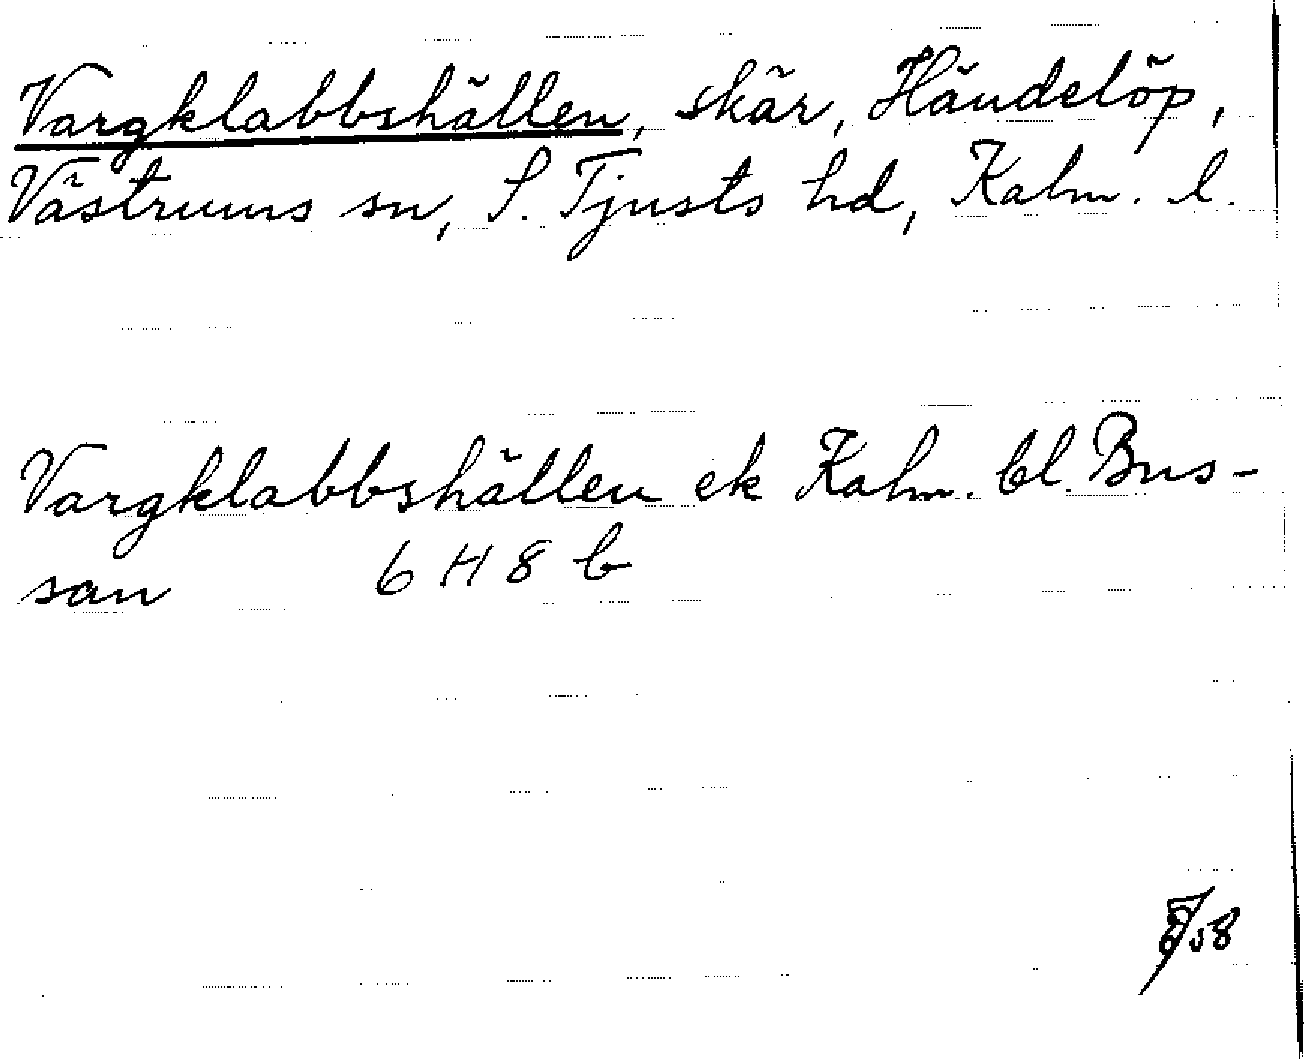 Vargklabbshällen, skär, Händelöp,
Västrums sn, S. Tjusts hd, Kalm. l.
Vargklabbshällen ek Kalm. bl. Bus-
san 6 H 8 b